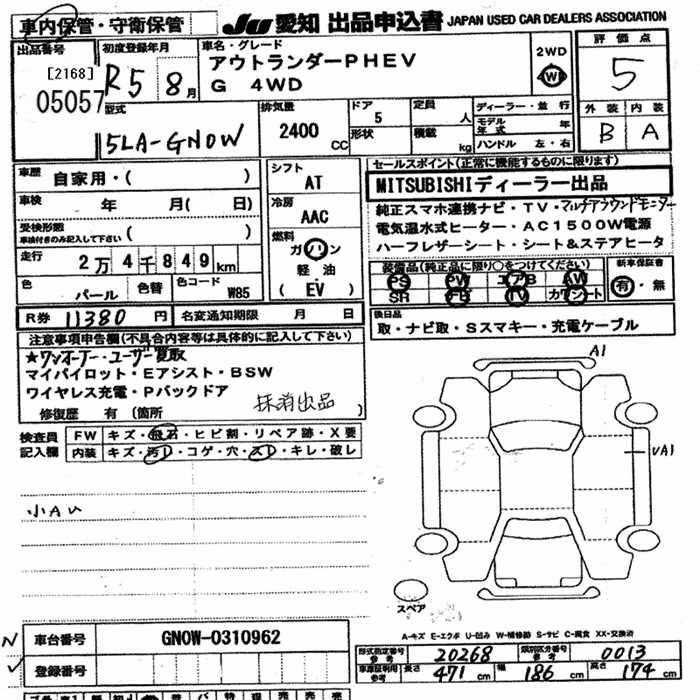 車内保管・守衛保管
JU 愛知 出品申込書 JAPAN USED CAR DEALERS ASSOCIATION
出品番号 初度登録年月 車名・グレード 2WD 評価点
[2168] R5 8月 アウトランダーPHEV 4WD 5
05057 G 4WD
型式 排気量 ドア 定員 人 ディーラー・並行 外装 内装
5LA-GN0W 2400 CC 5 形状 積載 kg モデル年式 年 B A
ハンドル 左・右
車歴 自家用・( ) シフト AT
セールスポイント(正常に機能するものに限ります)
MITSUBISHIディーラー出品
車検 年 月( 日) 冷房 AAC
純正スマホ連携ナビ・TV・マルチアラウンドモニター
受検形態 車検付きのみ記入して下さい ( )
電気温水式ヒーター・AC1500W電源
走行 2万4千849km 燃料 ガソリン
ハーフレザーシート・シート&ステアヒータ
軽油
色 パール 色替 色コード W85 (EV)
装備品(純正品に限り○をつけてください) 新車保証書
PS PW エアB AW 有・無
SR TV カワシート
R券 11380円 名変通知期限 月 日
後日品
取・ナビ取・Sスマキー・充電ケーブル
注意事項申告欄(不具合内容等は具体的に記入して下さい)
★ワンオーナー・ユーザー買取
マイパイロット・Eアシスト・BSW
ワイヤレス充電・Pバックドア
修復歴 有 (箇所 ) 抹消出品
検査員記入欄 FW キズ・飛石・ヒビ割・リペア跡・X要
内装 キズ・汚れ・コゲ・穴・スレ・キレ・破レ
A1
UA1
小Aい
スペア
A-キズ E-エクボ U-凹み W-補修跡 S-サビ C-腐食 XX-交換済
車台番号 GN0W-0310962
登録番号
型式指定番号 参考 20268 類別区分番号 参考 0013
車庫証明用 参考 長さ 471cm 幅 186cm 高さ 174cm